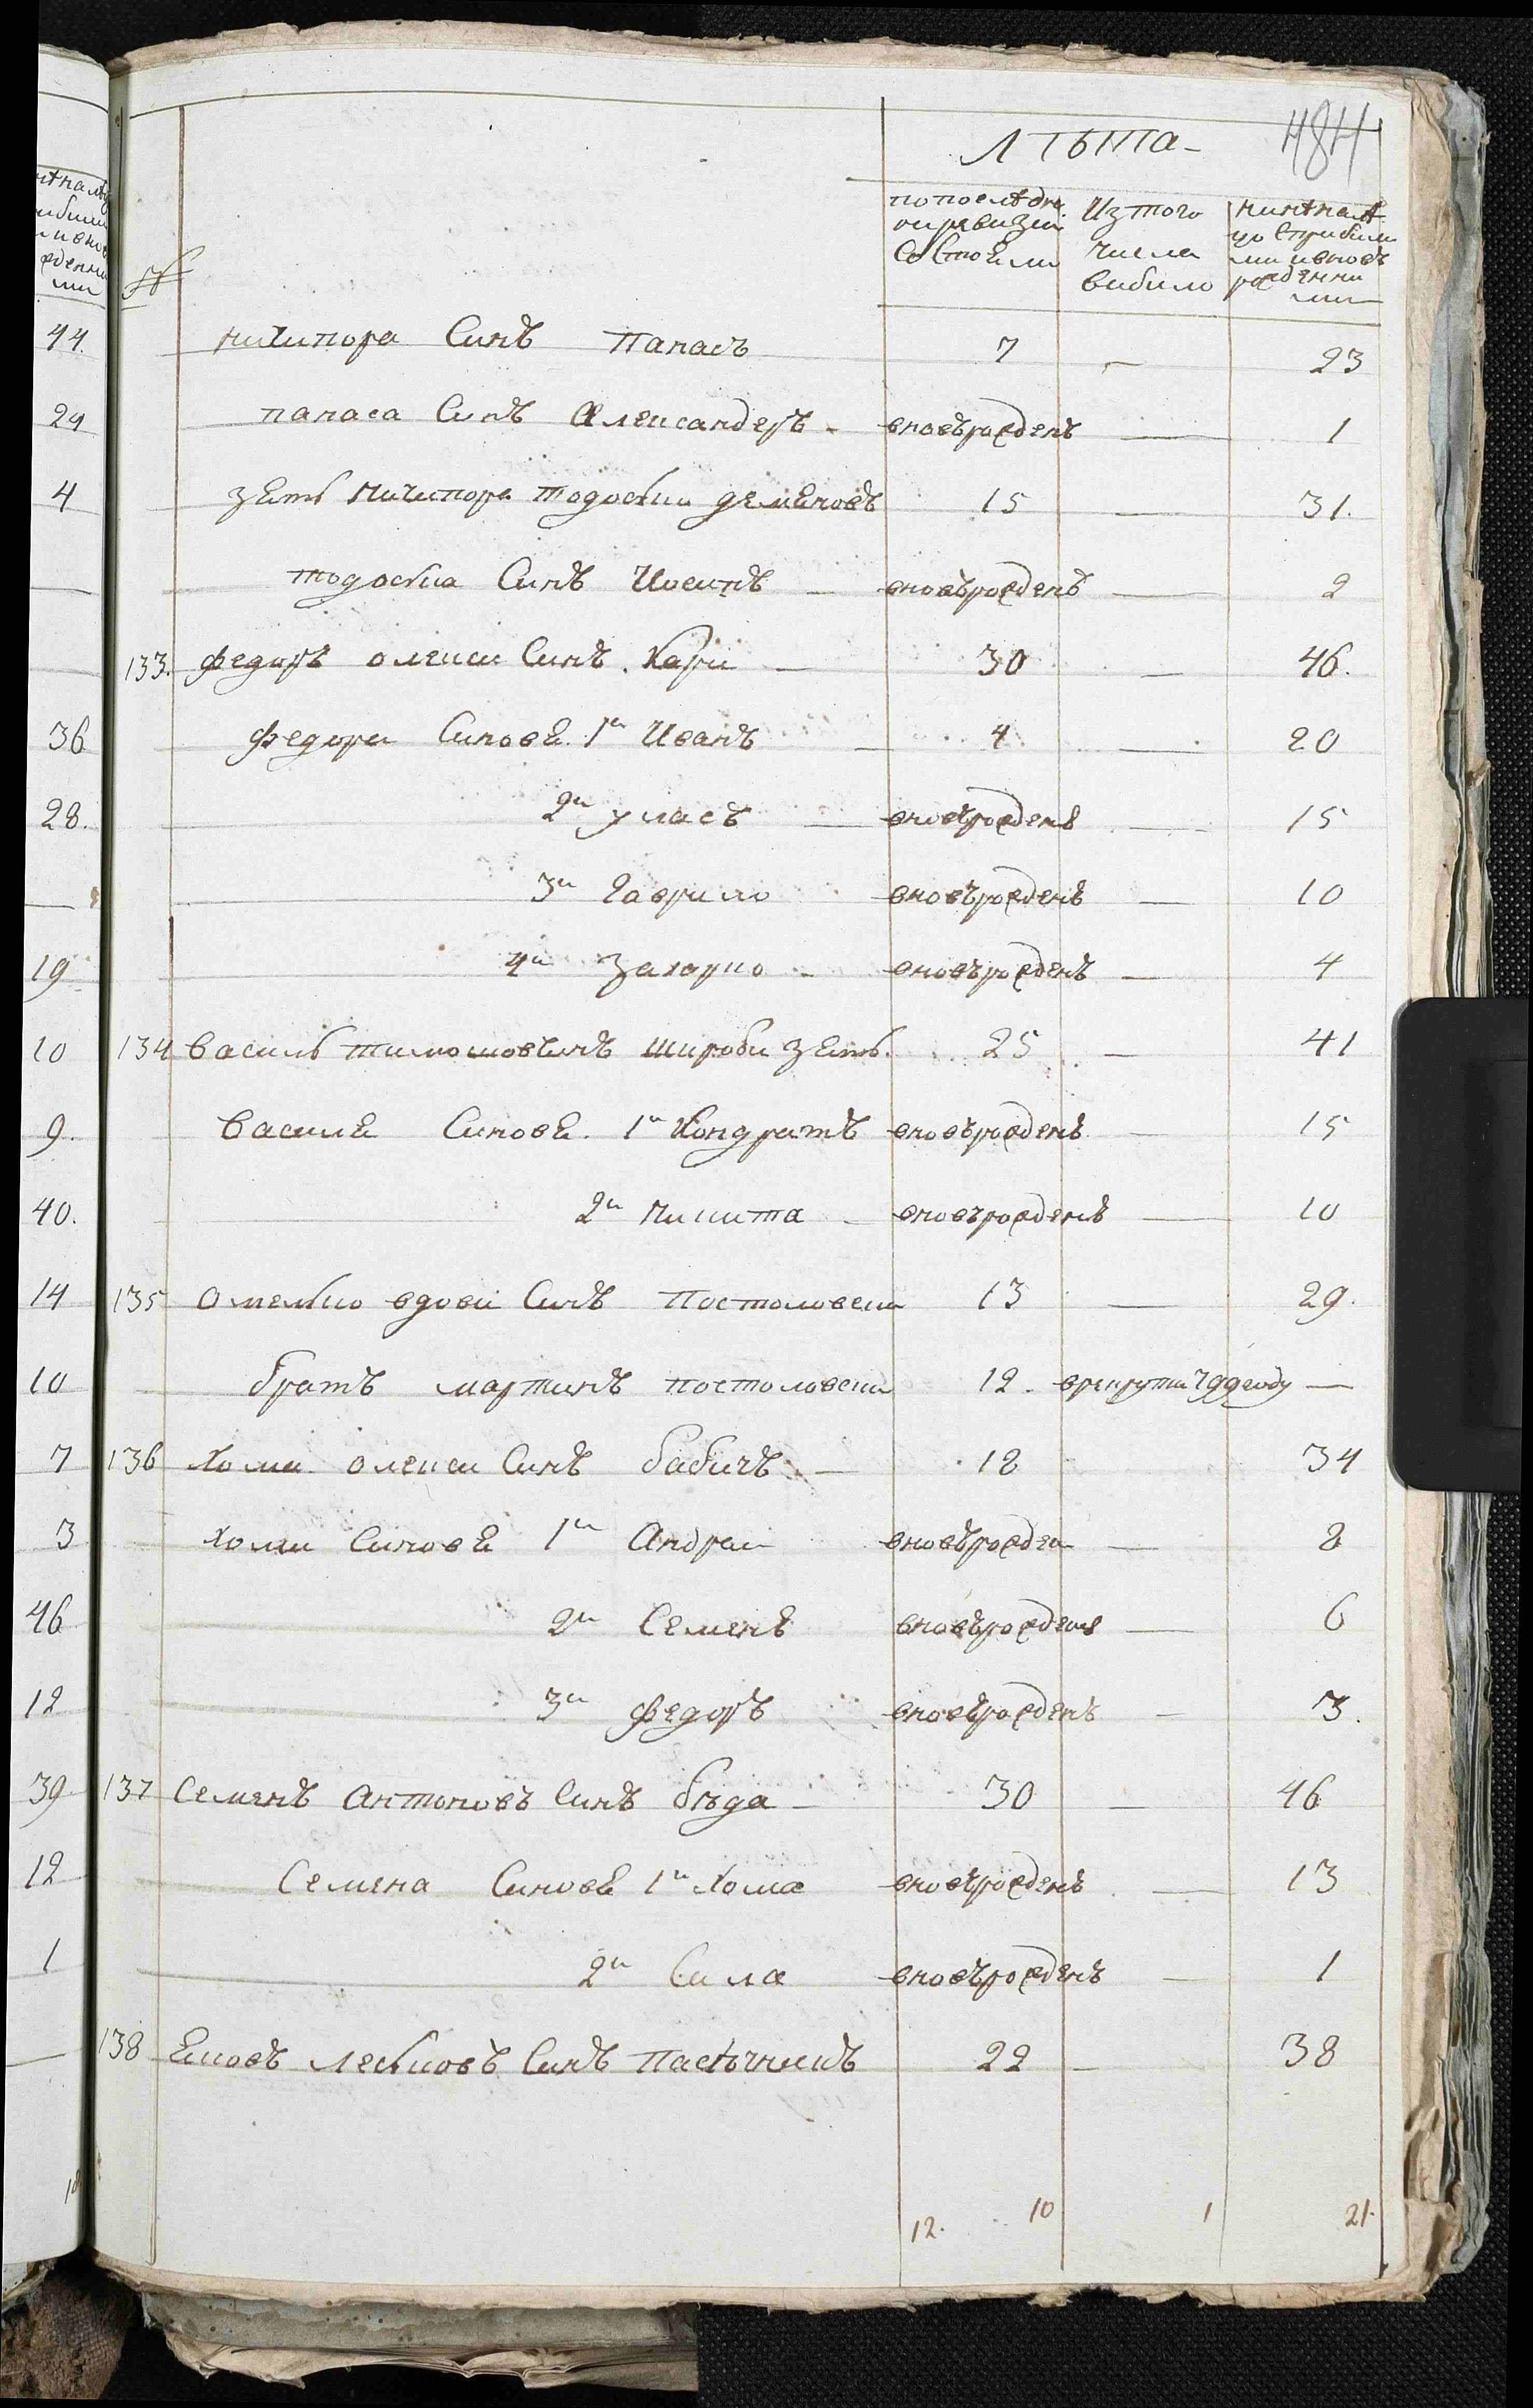 Лѣта
484
№
по послѣдне
й ревизіи
состояли
Из того
числа
выбило
нинѣ на лѣ
цо с прибили
ми и вновъ
рожденни
ми
ничипора Синъ Панасъ 7 — 23
панаса Синъ Александеръ - вновъ рожденъ — 1
зять ничипора тодоски деменовъ 15 — 31.
тодоська Синъ Иосипъ — вновъ рожденъ — 2
133. Федоръ олекси Синъ Кари — 30 — 46.
Федора Синовя 1й Иванъ — 4 — 20
2й уласъ — вновъ рожденъ — 15
3й Гаврило вновъ рожденъ — 10
4й Захарко - вновъ рожденъ — 4
134 Василь тимошовичъ широби зять. 25 — 41
Василя Синовя. 1й Кондратъ вновъ рожденъ — 15
2й Никита - вновъ рожденъ — 10
135 Омелько вдови Синъ Постоловски 13 — 29.
братъ мартинъ постоловски 12. врекрути 799 году —
136 Хома олекси Синъ бабичъ — 18 34
хоми Синовя 1й Андрей вновъ рожден — 8
2й Семенъ вновъ рожденъ — 6
3й Федоръ вновъ рожденъ — 3.
137 Семенъ Антоновъ Синъ бѣда — 30 — 46
Семена Синовя 1й Хома вновъ рожденъ — 13
2й Сила вновъ рожденъ — 1
138 Яковъ леськовъ Синъ Пасѣчникъ 22 — 38
12. 10 1 21.
44.
29
4
36
28.
19
10
9.
40.
14
10
7
3
46
12
39
12
1